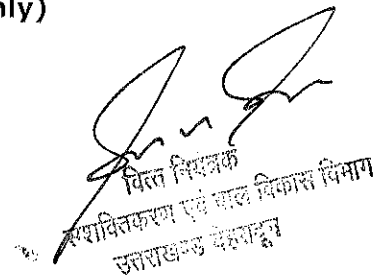 nly)
वित्त नियंत्रक
सशक्तिकरण एवं बाल विकास विभाग
उत्तराखण्ड देहरादून